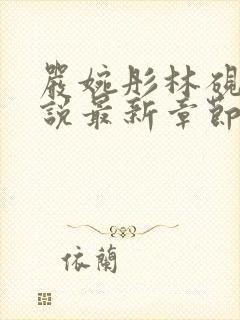 嚴婉彤林硯
說最新章節
依蘭